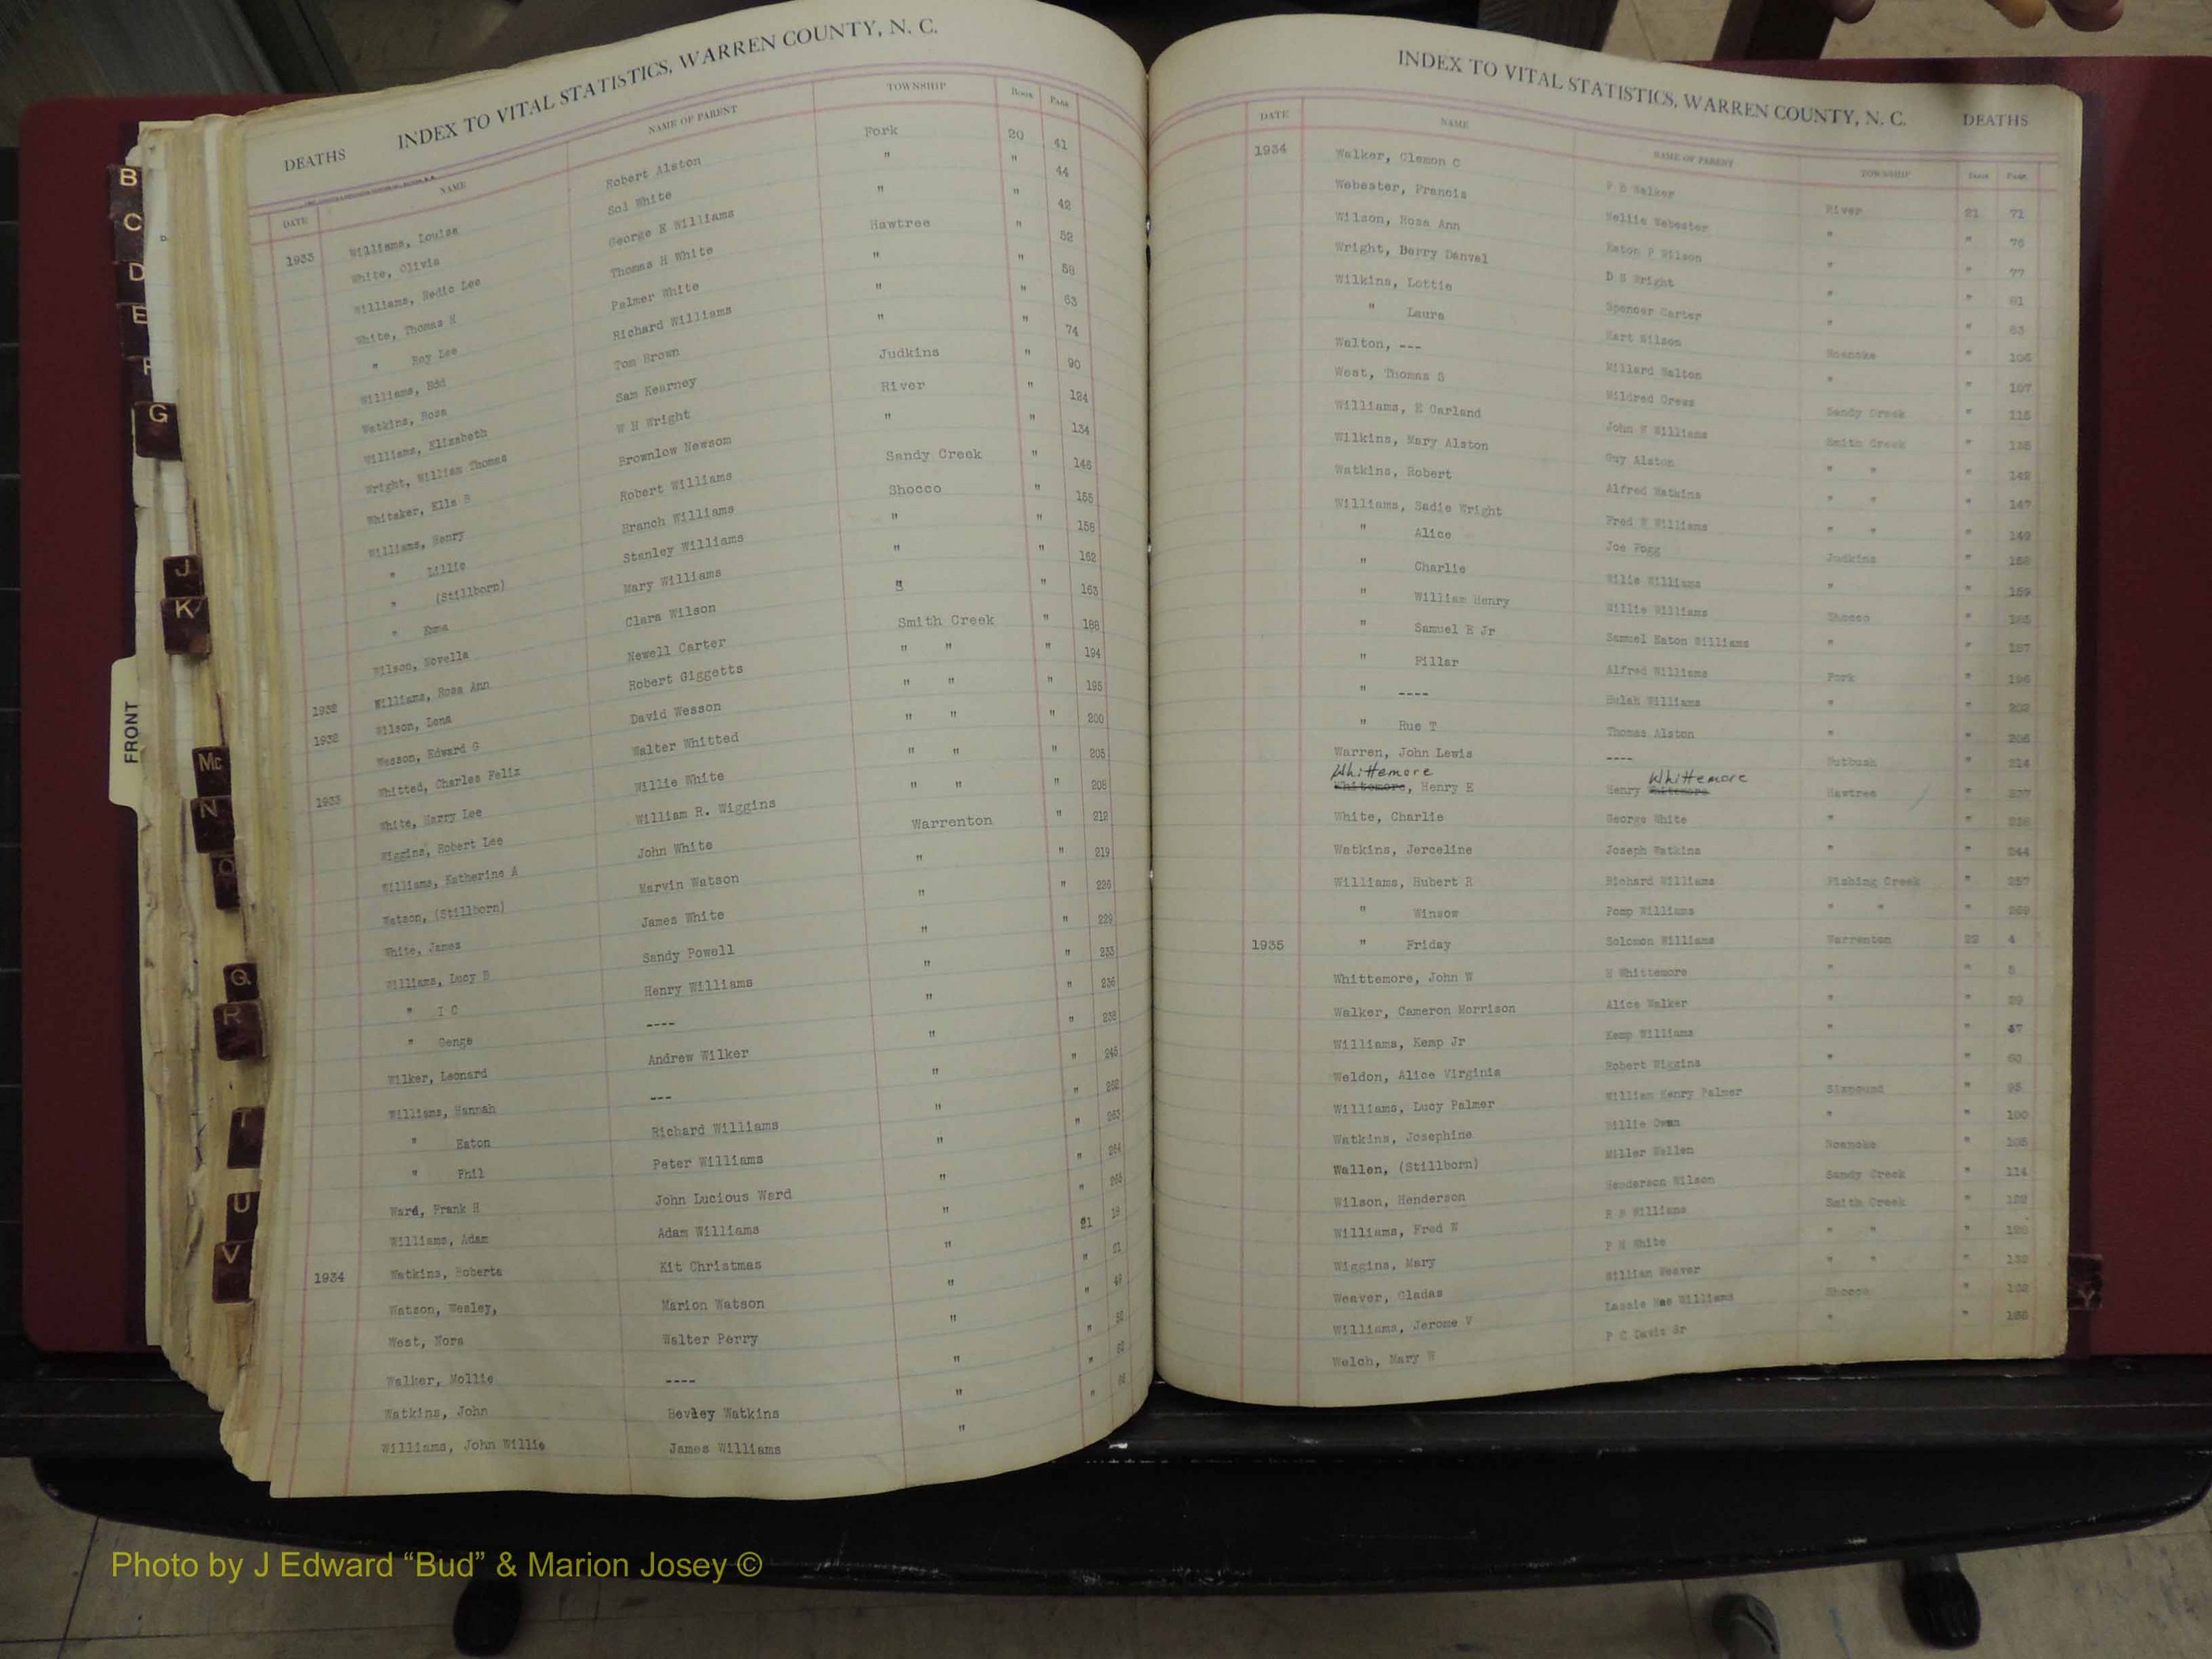 INDEX TO VITAL STATISTICS, WARREN COUNTY, N. C.
DEATHS
DATE NAME NAME OF PARENT TOWNSHIP Book Page
1933 Williams, Louise Robert Alston Fork 20 41
White, Olivia Sol White " " 44
Williams, Hedie Lee George E Williams " " 42
White, Thomas H Thomas H White Hawtree " 52
" Roy Lee Palmer White " " 58
Williams, Edd Richard Williams " " 63
Watkins, Rosa Tom Brown " " 74
Williams, Elizabeth Sam Kearney Judkins " 90
Wright, William Thomas W H Wright River " 124
Whitaker, Ella B Brownlow Newsom " " 134
Williams, Henry Robert Williams Sandy Creek " 146
" Lillie Branch Williams Shocco " 155
" (Stillborn) Stanley Williams " " 158
" Emma Mary Williams " " 162
Wilson, Novella Clara Wilson " " 163
1932 Williams, Rosa Ann Newell Carter Smith Creek " 188
1932 Wilson, Lena Robert Giggetts " " " 194
Wesson, Edward G David Wesson " " " 195
1933 Whitted, Charles Felix Walter Whitted " " " 200
White, Harry Lee Willie White " " " 205
Wiggins, Robert Lee William R. Wiggins " " " 208
Williams, Katherine A John White Warrenton " 212
Watson, (Stillborn) Marvin Watson " " 219
White, James James White " " 226
Williams, Lucy B Sandy Powell " " 229
" I C Henry Williams " " 233
" Genge ---- " " 236
Wilker, Leonard Andrew Wilker " " 238
Williams, Hannah --- " " 245
" Eaton Richard Williams " " 262
" Phil Peter Williams " " 263
Ward, Frank H John Lucious Ward " " 264
Williams, Adam Adam Williams " " 265
1934 Watkins, Roberta Kit Christmas " 21 18
Watson, Wesley, Marion Watson " " 21
West, Nora Walter Perry " " 49
Walker, Mollie ---- " "
Watkins, John Bevley Watkins " "
Williams, John Willie James Williams " "
INDEX TO VITAL STATISTICS, WARREN COUNTY, N. C. DEATHS
DATE NAME NAME OF PARENT TOWNSHIP Book Page
1934 Walker, Clemon C Walker River 21 71
Webester, Francis Nellie Webester " " 76
Wilson, Rosa Ann Eaton P Wilson " " 77
Wright, Berry Danval D S Wright " " 81
Wilkins, Lottie Spencer Carter " " 83
" Laura Hart Wilson Roanoke " 106
Walton, --- Millard Walton " " 107
West, Thomas S Mildred Crews Sandy Creek " 115
Williams, E Garland John W Williams Smith Creek " 135
Wilkins, Mary Alston Guy Alston " " " 142
Watkins, Robert Alfred Watkins " " " 147
Williams, Sadie Wright Fred W Williams " " " 149
" Alice Joe Fogg Judkins "
" Charlie Wilie Williams " " 159
" William Henry Willie Williams Shocco "
" Samuel E Jr Samuel Eaton Williams " " 187
" Pillar Alfred Williams Fork " 196
" ---- Hulah Williams " " 202
" Rue T Thomas Alston " " 206
Warren, John Lewis ---- Nutbush " 214
Whittemore Whittemore
Whitemore, Henry E Henry Whitemore Hawtree " 237
White, Charlie George White " " 238
Watkins, Jerceline Joseph Watkins " " 244
Williams, Hubert R Richard Williams Fishing Creek " 257
" Winsow Pomp Williams " " "
1935 " Friday Solomon Williams Warrenton 22 4
Whittemore, John W H Whittemore " " 5
Walker, Cameron Morrison Alice Walker " "
Williams, Kemp Jr Kemp Williams " " 47
Weldon, Alice Virginia Robert Wiggins " " 60
Williams, Lucy Palmer William Henry Palmer Sixpound " 95
Watkins, Josephine Billie Owan " " 100
Wallen, (Stillborn) Miller Wallen Roanoke " 105
Wilson, Henderson Henderson Wilson Sandy Creek " 114
Williams, Fred W Williams Smith Creek " 122
Wiggins, Mary P H White " " "
Weaver, Gladas William Weaver " " " 132
Williams, Jerome V Lassie Mae Williams Shocco "
Welch, Mary W P C Davis Sr " "
B
C
D
E
F
G
J
K
FRONT
Mc
N
O
Q
R
T
U
V
Y
Photo by J Edward “Bud” & Marion Josey ©